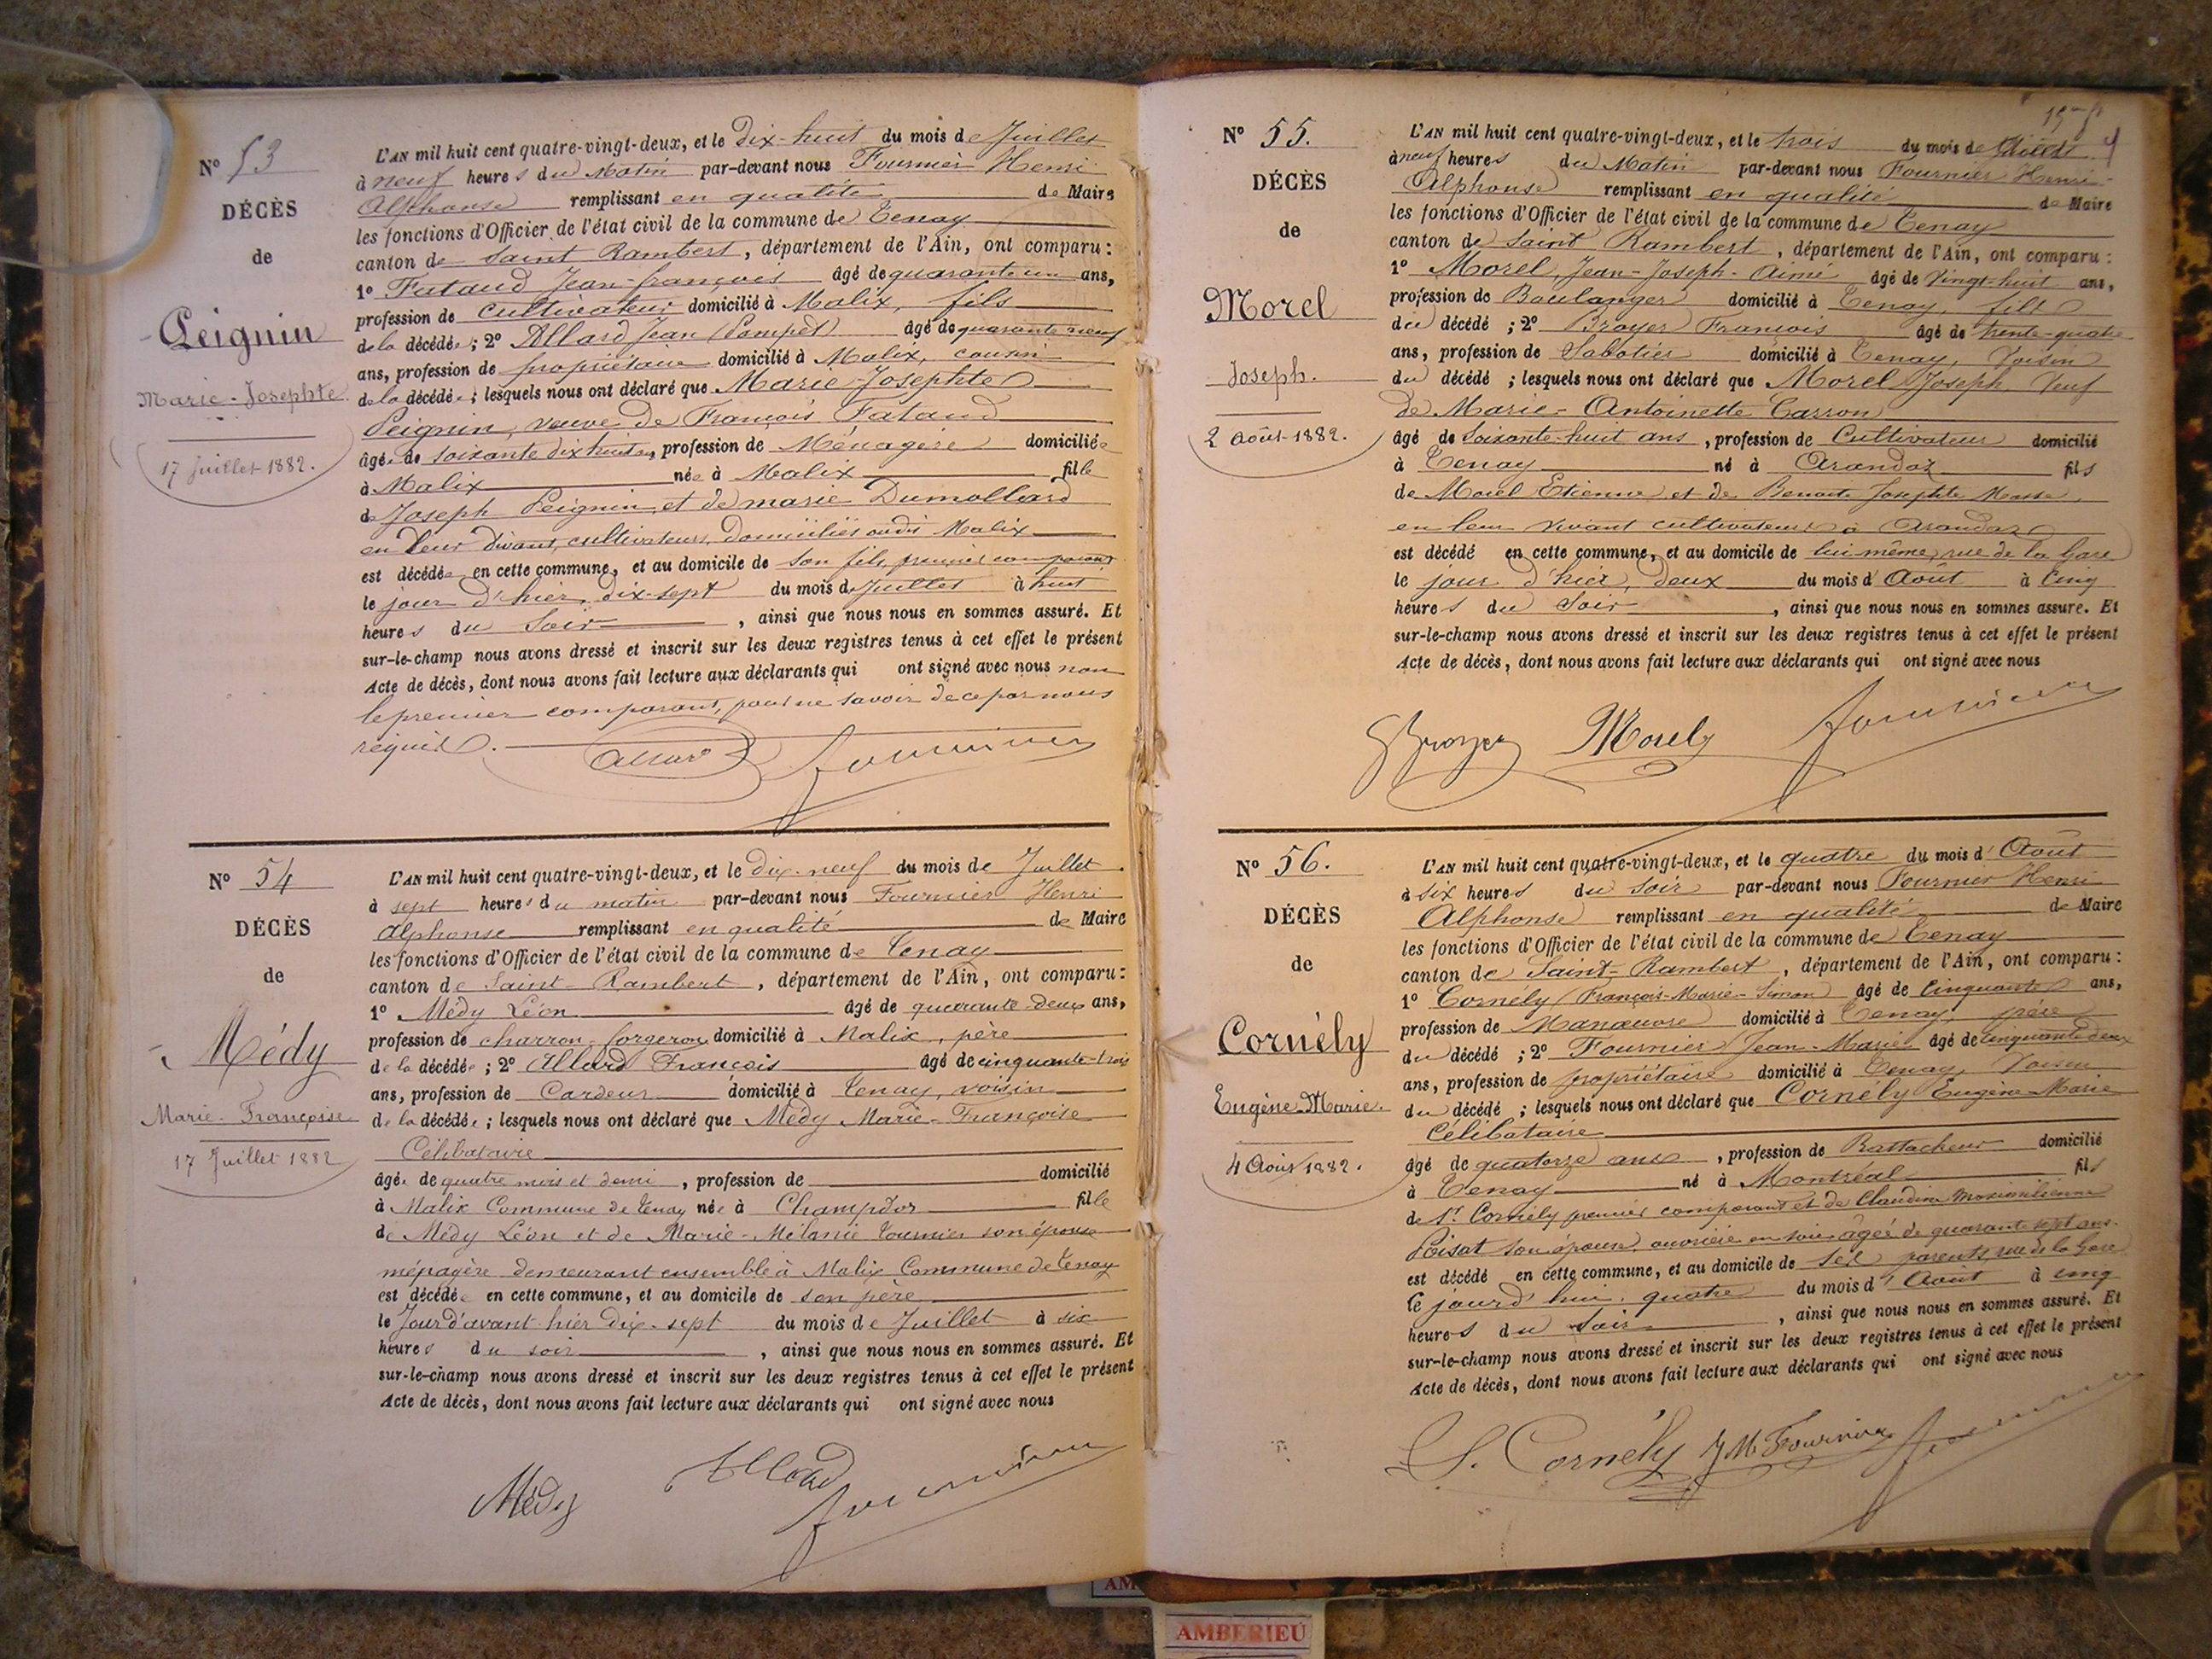 Nº 53
DÉCÈS
de
Peignin
Marie-Josephte
17 Juillet 1882.
L'AN mil huit cent quatre-vingt-deux, et le dix-huit du mois de Juillet
à neuf heures du Matin par-devant nous Fournier Henri
Alphonse remplissant en qualité de Maire
les fonctions d'Officier de l'état civil de la commune de Tenay
canton de Saint Rambert, département de l'Ain, ont comparu :
1º Fataud Jean-françois âgé de quarante un ans,
profession de cultivateur domicilié à Malix, fils
de la décédée ; 2º Allard Jean (Pompét) âgé de quarante neuf
ans, profession de propriétaire domicilié à Malix, cousin
de la décédée ; lesquels nous ont déclaré que Marie Josephte
Peignin, veuve de François Fataud
âgée de soixante dix huit ans, profession de Ménagère domiciliée
à Malix née à Malix fille
de Joseph Peignin, et de marie Dumollard
en leur vivant, cultivateurs, domiciliés audit Malix
est décédée en cette commune, et au domicile de son fils, premier comparant
le jour d'hier, dix-sept du mois de Juillet à huit
heures du Soir, ainsi que nous nous en sommes assuré. Et
sur-le-champ nous avons dressé et inscrit sur les deux registres tenus à cet effet le présent
Acte de décès, dont nous avons fait lecture aux déclarants qui ont signé avec nous non
le premier comparant, pour ne savoir de ce par nous
requis.
Allard Fournier
Nº 54
DÉCÈS
de
Médy
Marie-Françoise
17 Juillet 1882
L'AN mil huit cent quatre-vingt-deux, et le dix-neuf du mois de Juillet
à sept heures du matin par-devant nous Fournier Henri
Alphonse remplissant en qualité de Maire
les fonctions d'Officier de l'état civil de la commune de Tenay
canton de Saint-Rambert, département de l'Ain, ont comparu :
1º Médy Léon âgé de quarante deux ans,
profession de charron forgeron domicilié à Malix, père
de la décédée ; 2º Allard François âgé de cinquante-trois
ans, profession de Cardeur domicilié à Tenay, voisin
de la décédée ; lesquels nous ont déclaré que Médy Marie-Françoise
Célibataire
âgée de quatre mois et demi, profession de domicilié
à Malix Commune de Tenay née à Champdor fille
de Médy Léon et de Marie-Mélanie Tournier son épouse
ménagère demeurant ensemble à Malix Commune de Tenay
est décédée en cette commune, et au domicile de son père
le Jour d'avant hier dix-sept du mois de Juillet à six
heures du soir, ainsi que nous nous en sommes assuré. Et
sur-le-champ nous avons dressé et inscrit sur les deux registres tenus à cet effet le présent
Acte de décès, dont nous avons fait lecture aux déclarants qui ont signé avec nous
Médy Allard Fournier
Nº 55.
DÉCÈS
de
Morel
Joseph.
2 Août 1882.
L'AN mil huit cent quatre-vingt-deux, et le trois du mois de
à neuf heures du Matin par-devant nous Fournier Henri
Alphonse remplissant en qualité de Maire
les fonctions d'Officier de l'état civil de la commune de Tenay
canton de Saint Rambert, département de l'Ain, ont comparu :
1º Morel, Jean-Joseph-Aimé âgé de Vingt-huit ans,
profession de Boulanger domicilié à Tenay, fils
du décédé ; 2º Broyer François âgé de trente-quatre
ans, profession de Sabotier domicilié à Tenay, Voisin
du décédé ; lesquels nous ont déclaré que Morel Joseph, Veuf
de Marie-Antoinette Carron
âgé de Soixante-huit ans, profession de Cultivateur domicilié
à Tenay né à Arandaz fils
de Morel Etienne et de Benoite Josephte Masse,
en leur vivant cultivateurs à Arandaz
est décédé en cette commune, et au domicile de lui même, rue de la Gare
le jour d'hier, deux du mois d'Août à Cinq
heures du Soir, ainsi que nous nous en sommes assuré. Et
sur-le-champ nous avons dressé et inscrit sur les deux registres tenus à cet effet le présent
Acte de décès, dont nous avons fait lecture aux déclarants qui ont signé avec nous
Broyer Morel Fournier
Nº 56.
DÉCÈS
de
Cornély
Eugène-Marie.
4 Août 1882.
L'AN mil huit cent quatre-vingt-deux, et le quatre du mois d'Août
à six heures du soir par-devant nous Fournier Henri
Alphonse remplissant en qualité de Maire
les fonctions d'Officier de l'état civil de la commune de Tenay
canton de Saint-Rambert, département de l'Ain, ont comparu :
1º Cornély (François-Marie-Simon) âgé de Cinquante ans,
profession de Manœuvre domicilié à Tenay, père
du décédé ; 2º Fournier Jean-Marie âgé de cinquante deux
ans, profession de propriétaire domicilié à Tenay, Voisin
du décédé ; lesquels nous ont déclaré que Cornély Eugène Marie
Célibataire
âgé de quatorze ans, profession de Rattacheur domicilié
à Tenay né à Montréal fils
de Sr. Cornély premier comparant et de Claudine Maximilienne
Poisat son épouse, ouvrière en soie âgée de quarante sept ans.
est décédé en cette commune, et au domicile de ses parents, rue de la Gare
le jourd'hui, quatre du mois d'Août à cinq
heures du soir, ainsi que nous nous en sommes assuré. Et
sur-le-champ nous avons dressé et inscrit sur les deux registres tenus à cet effet le présent
Acte de décès, dont nous avons fait lecture aux déclarants qui ont signé avec nous
S. Cornély J M Fournier Fournier
AMBERIEU